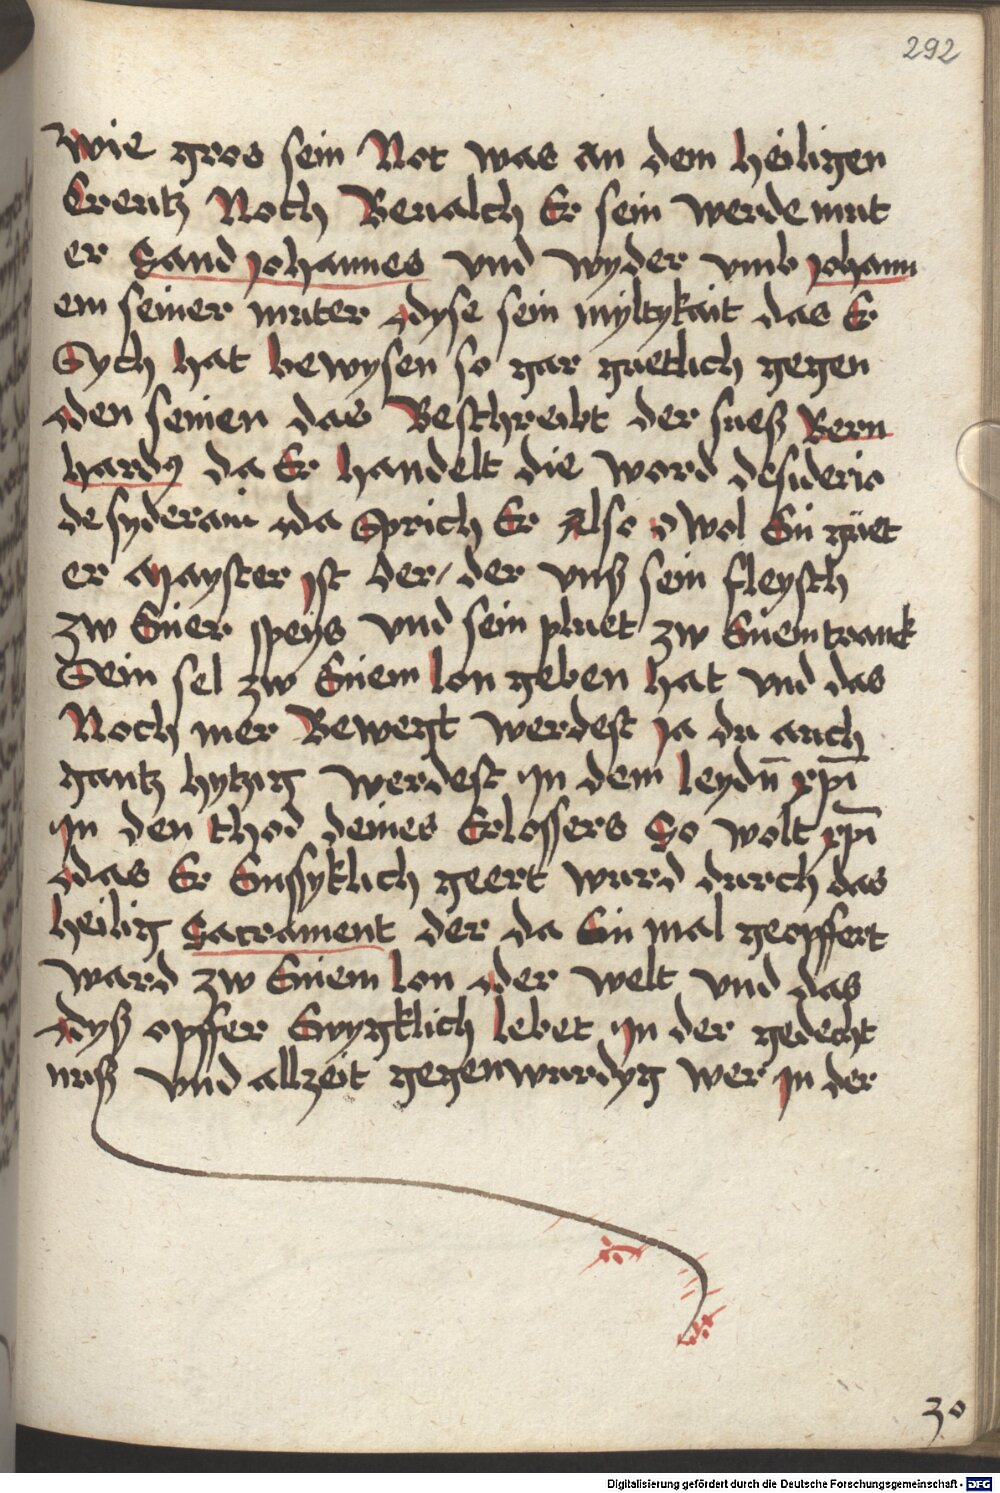 292
Wie gros sein Not was an dem heiligen
Creutz Noch Beualch Er sein werde mut
er Sand Johannes vnd wyder vmb Johann
em seiner muter dyse sein myltykait das Er
Sych hat bewysen so gar guetlich gegen
den seinen das Beschreibt der sues Bern
hardꝰ da Er handelt die word desiderio
desyderaui da Sprich Er Also o wol Ein guet
er Mayster Jst der / der vnß sein fleysch
zw Einer speys vnd sein pluet zw Einem tranck
Sein sel zw Einem lon geben hat vnd das
Noch mer Bewegt werdest ja du auch
gantz hytzig werdest Jn dem leydn̄ xp̄i
Jn den thod deines Erlossers So wolt xp̄i
das Er Einssyklich geert wurd durch das
heilig Sacrament der da Ein mal geopffert
ward zw Einem lon der welt vnd das
dyß opffer Ewygklich lebet Jn der gedecht
nuß vnd allzeit gegenwurdyg wer Jn der
30
Digitalisierung gefördert durch die Deutsche Forschungsgemeinschaft - DFG